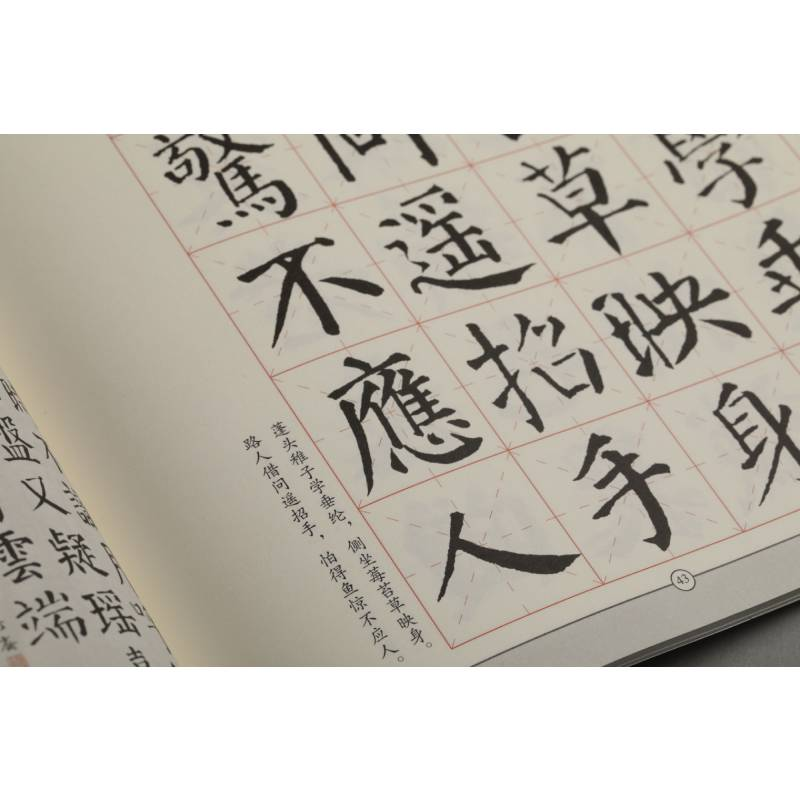 學垂
草映身
問遥招手
驚不應人
蓬头稚子学垂纶，侧坐莓苔草映身。
路人借问遥招手，怕得鱼惊不应人。
43
盤又疑瑶
雲端